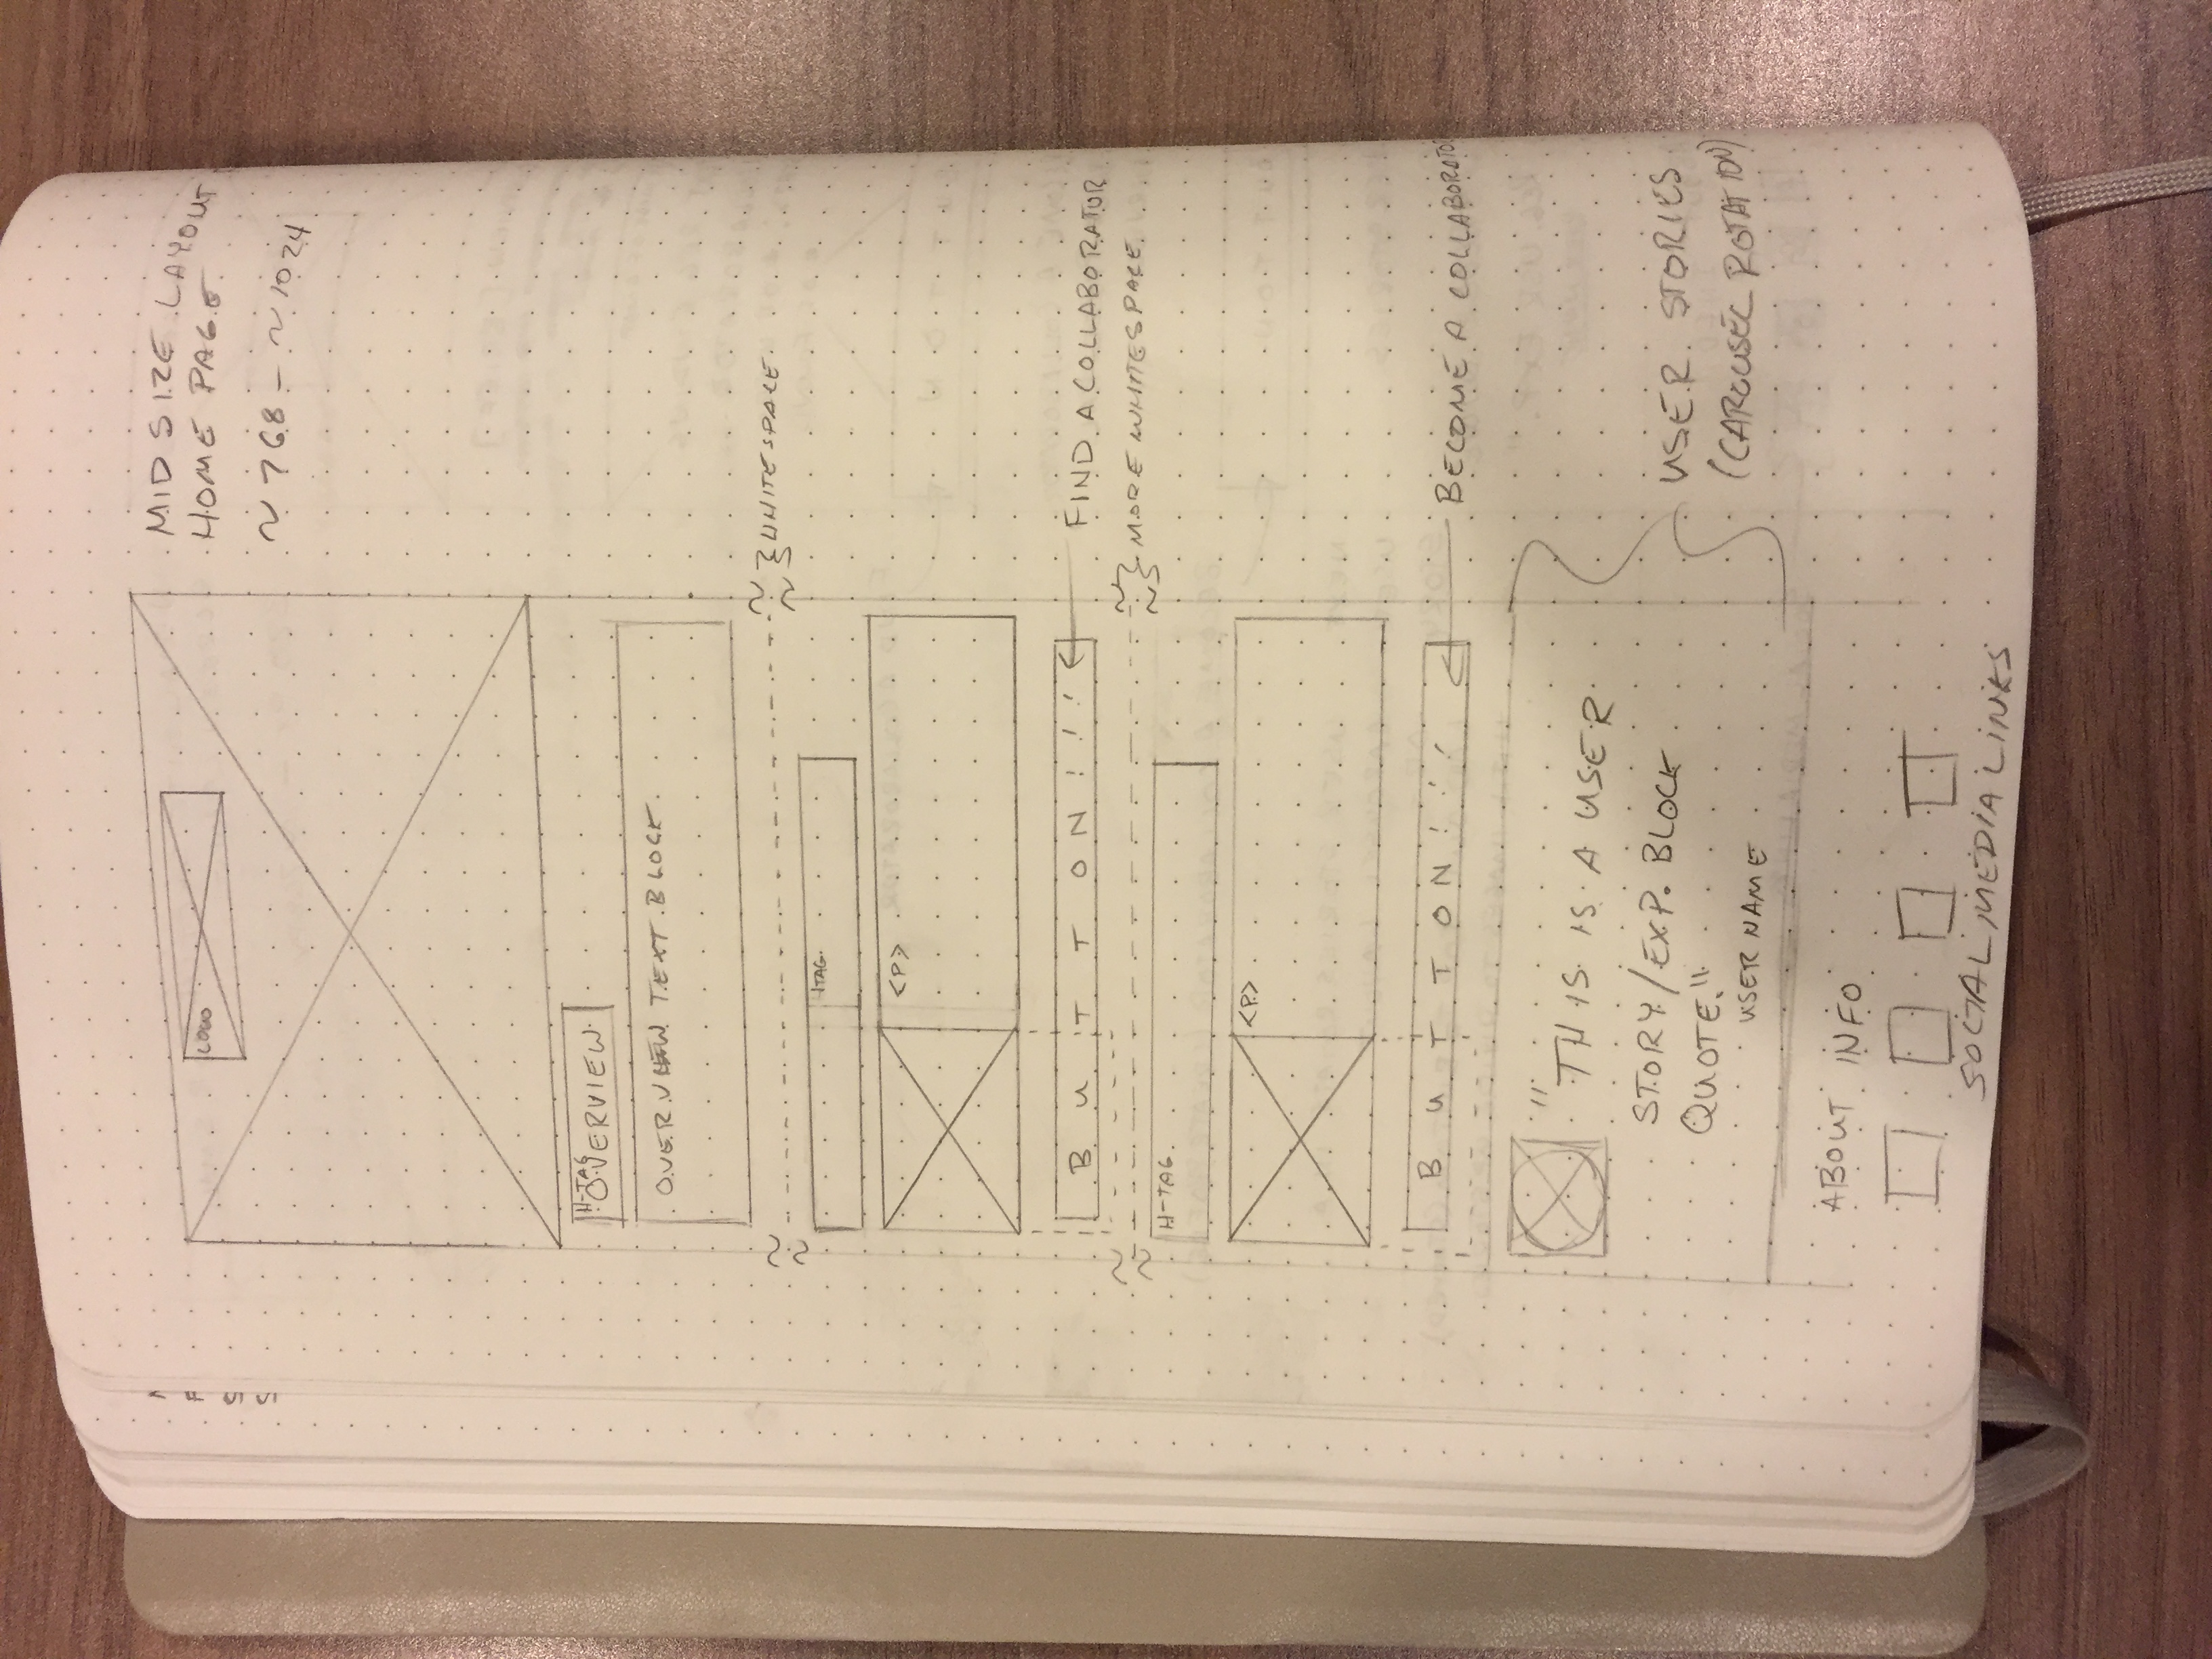 MID SIZE LAYOUT
HOME PAGE
~768 – ~1024
LOGO
H-TAG
OVERVIEW
OVERVIEW TEXT BLOCK
WHITESPACE
HTAG
<P>
BUTTON!!!
FIND A COLLABORATOR
MORE WHITESPACE
H-TAG
<P>
BUTTON!!!
BECOME A COLLABORATOR
"THIS IS A USER
STORY/EXP. BLOCK
QUOTE."
USER NAME
USER STORIES
(CAROUSEL ROTATION)
ABOUT INFO
SOCIAL MEDIA LINKS